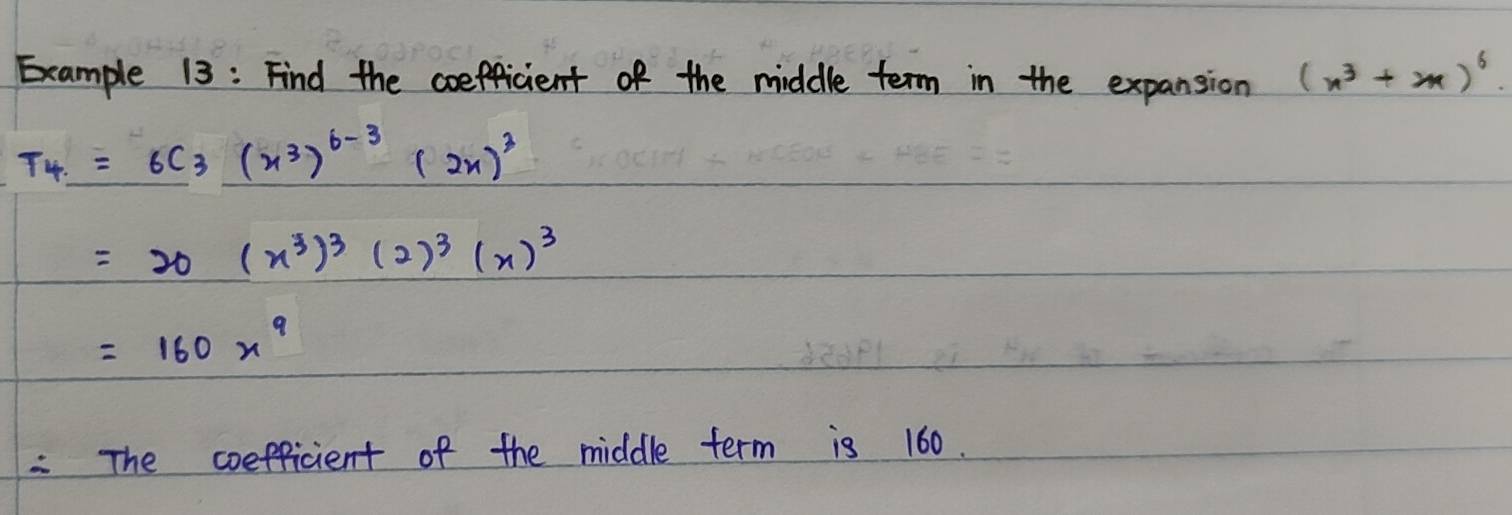 Example 13 : Find the coefficient of the middle term in the expansion (x³ + 2x)⁶.
T4. = 6C3 (x³)⁶⁻³ (2x)³
= 20 (x³)³ (2)³ (x)³
= 160 x⁹
∴ The coefficient of the middle term is 160.